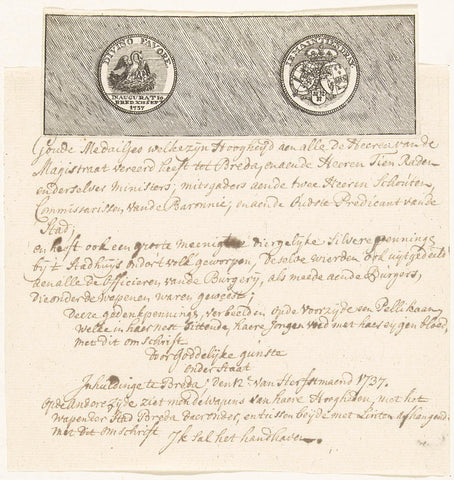 DIVINO FAVORE
INAUGURATIO
BRED. XII SEP
1737
JE MAINTIENDRAY
Goude Medailjes welke zyn Hoogheijd aen alle De Heeren van de
Magistraat vereerd heeft tot Breda, en aende Heeren Tien Raden
en derselver Ministers; mitsgaders aende twee Heeren Schouten,
Commissarissen vande Baronnie, en aende Oudste Predicant vande
Stad;
en heeft ook een groote meenigte diergelyke Silvere penningen
by't Stadhuijs onder't volk geworpen, De selve wierden ook uytgedeelt
aen alle de Officieren vande Burgery, als meede aende Burgers,
die onder de wapenen waren geweest;
Deeze gedenkpenningen, verbeelden op de Voorzyde een Pellikaan
welke in haer nest sittende, haere Jongen voed met haer eygen bloed,
met dit omschrift
Door Goddelijke gunste
onder staat
Inhuldinge te Breda den 12e. van Herfstmaend 1737.
Op de Andere zyde ziet men de Wapens van haere Hoogheden, met het
wapen der Stad Breda daer onder, en tussen beyde met Linten afhangende
met dit omschrift Ik sal het handhaven.